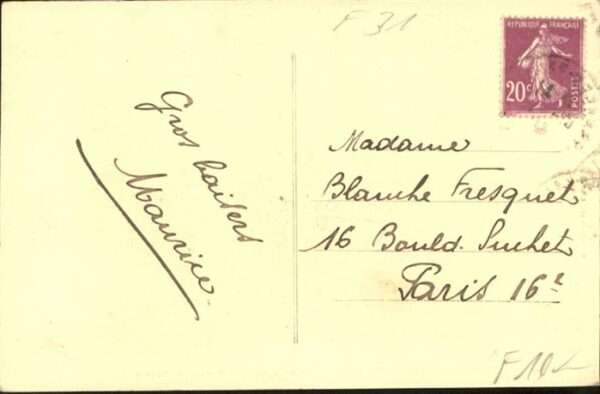 F 31
REPUBLIQUE FRANÇAISE
20c
POSTES
Gros baisers
Maurice
Madame
Blanche Fresquet
16 Bould. Suchet
Paris 16e